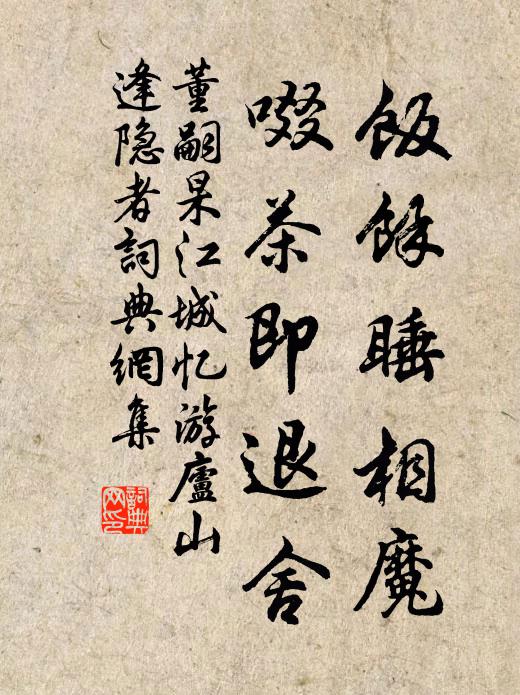 飯餘睡相魔
啜茶即退舍
董嗣杲江城忆游廬山
逢隐者詞典網集
詞典网印